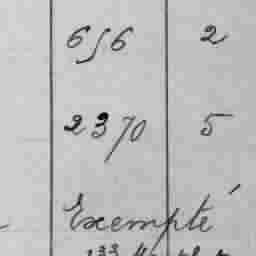 656 2
2370 5
Exempté